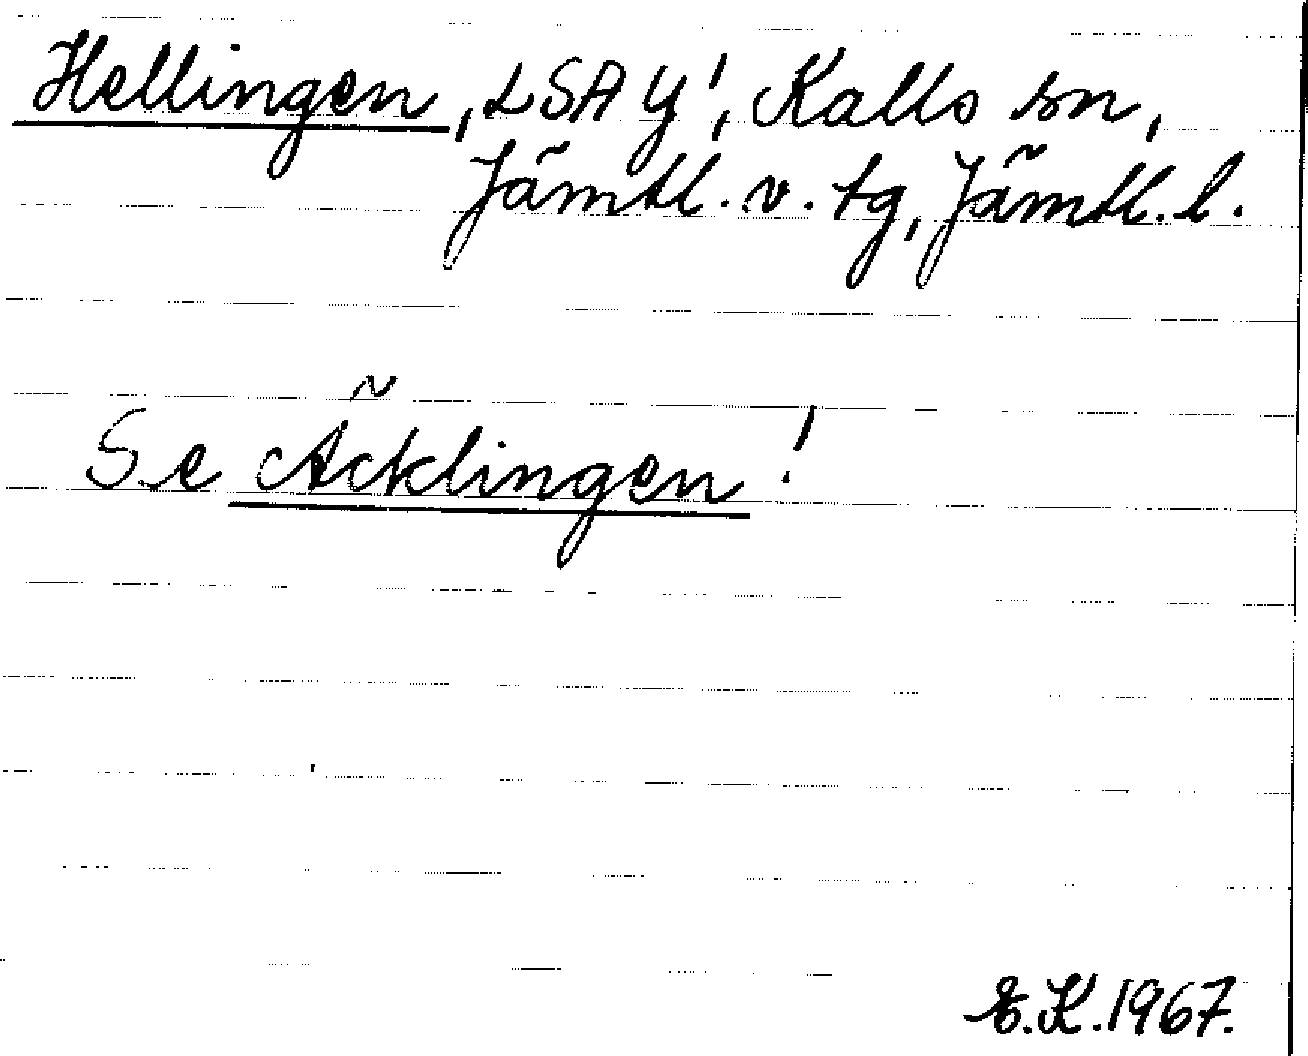 Hellingen, LSA Y!, Kalls sn,
Jämtl. v. tg, Jämtl. l.
Se Äcklingen!
E.K. 1967.